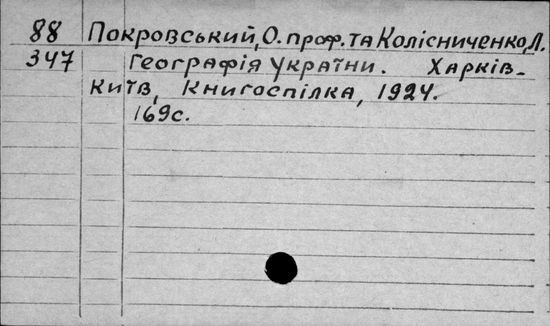 88 Покровський, О. проф. та Колісниченко, Л.
347 Географія України. Харків-
Київ, Книгоспілка, 1924.
169с.